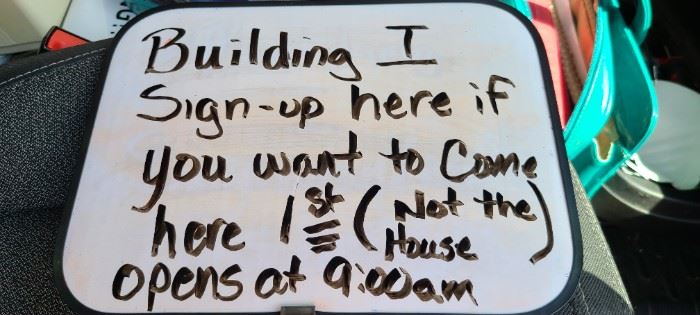 Building I
Sign-up here if
you want to Come
here 1st (Not the House)
opens at 9:00am